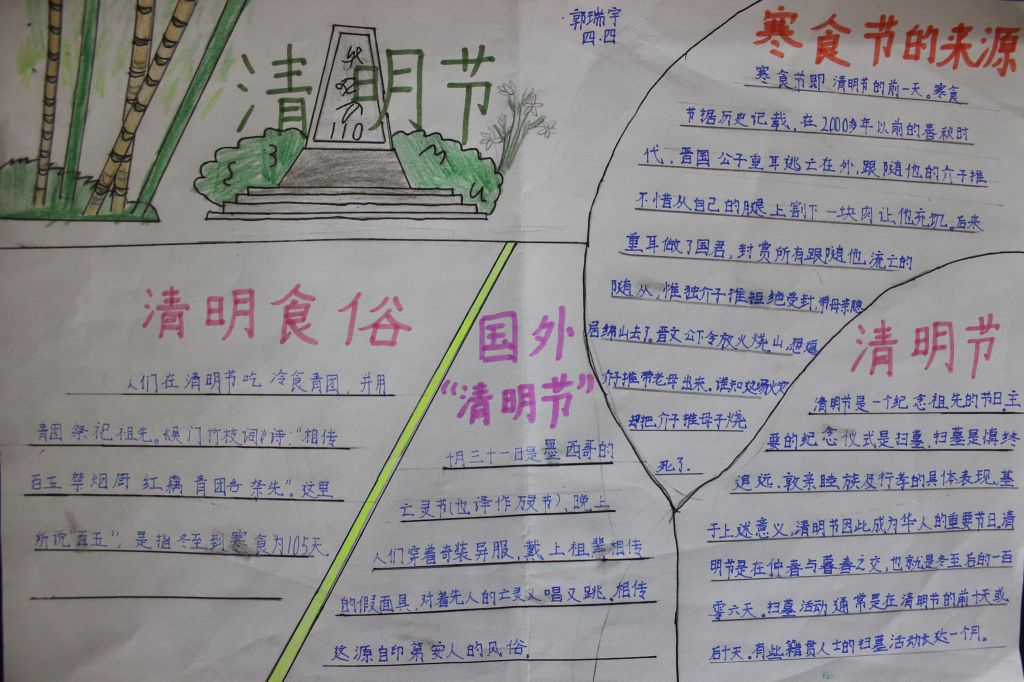 清明节
110
郭瑞宇
四.四
寒食节的来源
寒食节即清明节的前一天。寒食
节据历史记载,在2000多年以前的春秋时
代,晋国公子重耳逃亡在外,跟随他的介子推
不惜从自己的腿上割下一块肉让他充饥。后来
重耳做了国君,封赏所有跟随他流亡的
随从,惟独介子推拒绝受封,带母亲隐
居绵山去了。晋文公下令放火烧山,想逼
介子推带老母出来。谁知这场火
却把介子推母子烧
死了.
清明食俗
人们在清明节吃冷食青团,并用
青团祭祀祖先。《吴门竹枝词》诗:“相传
百五禁烟厨红藕青团各祭先”。这里
所说“百五”,是指冬至到寒食为105天
国外
“清明节”
十月三十一日是墨西哥的
亡灵节(也译作万灵节),晚上
人们穿着奇装异服,戴上祖辈相传
的假面具,对着先人的亡灵又唱又跳.相传
这源自印第安人的风俗.
清明节
清明节是一个纪念祖先的节日.主
要的纪念仪式是扫墓,扫墓是慎终
追远、敦亲睦族及行孝的具体表现。基
于上述意义,清明节因此成为华人的重要节日.清
明节是在仲春与暮春之交,也就是冬至后的一百
零六天。扫墓活动通常是在清明节的前十天或
后十天。有些籍贯人士的扫墓活动长达一个月。